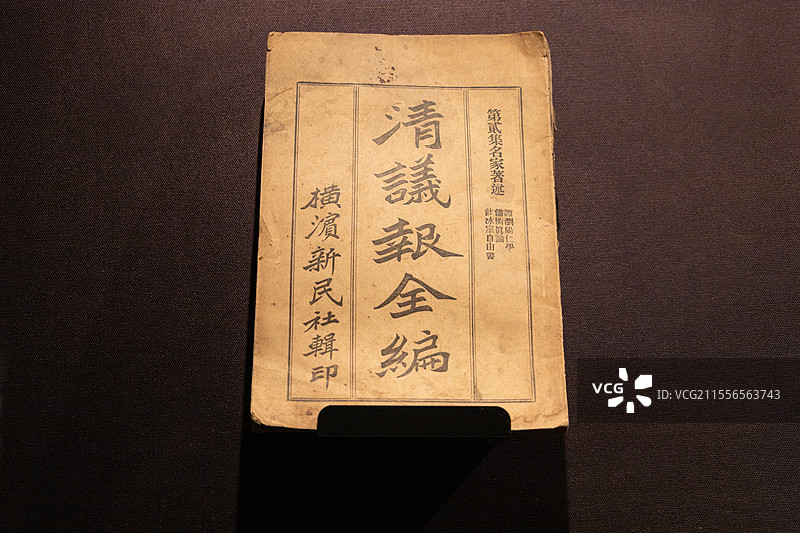 第貳集名家著述
譚瀏陽仁學
儒術眞論
飲冰室自由書
清議報全編
橫濱新民社輯印
VCG
ID:VCG211556563743